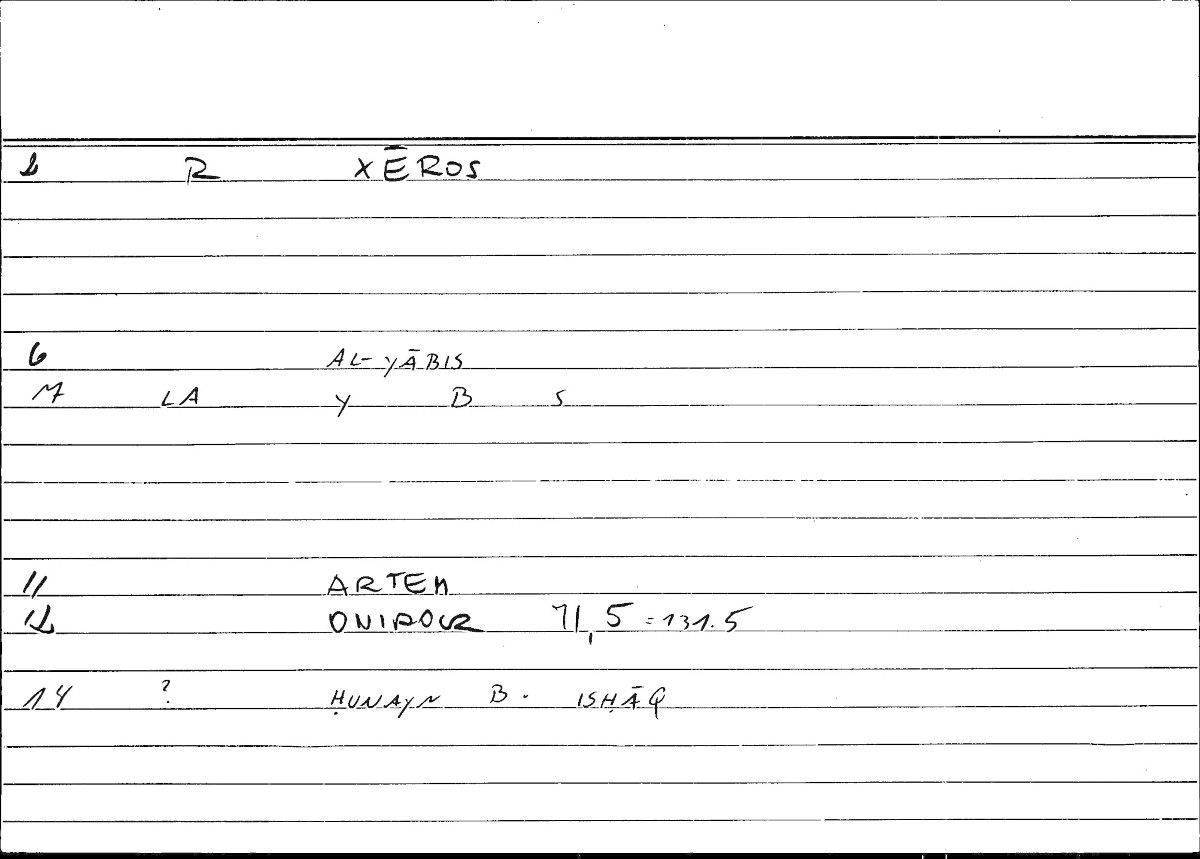 2 R XĒROS
6 AL-YĀBIS
M LA Y B S
11 ARTEM
12 ONIROCR 71,5 = 131.5
14 ? ḤUNAYN B. ISḤĀQ